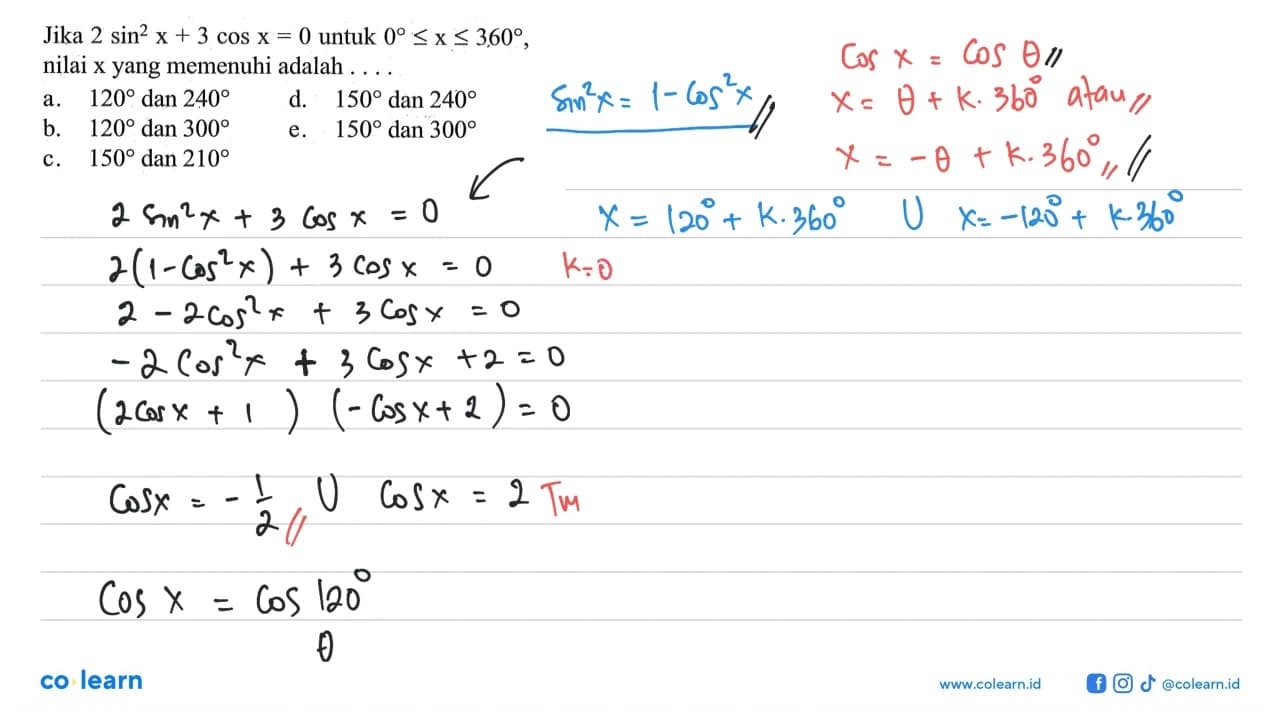 Jika 2 sin² x + 3 cos x = 0 untuk 0° ≤ x ≤ 360°,
nilai x yang memenuhi adalah . . . .
a. 120° dan 240° d. 150° dan 240°
b. 120° dan 300° e. 150° dan 300°
c. 150° dan 210°
Sin²x = 1 - Cos²x //
Cos x = Cos θ //
x = θ + k. 360° atau //
x = -θ + k. 360° // //
2 Sin²x + 3 Cos x = 0
2(1-Cos²x) + 3 Cos x = 0
2 - 2Cos²x + 3 Cos x = 0
-2 Cos²x + 3 Cos x + 2 = 0
(2Cos x + 1 ) (-Cos x + 2) = 0
Cos x = -1/2 // U Cos x = 2 TM
Cos x = Cos 120°
θ
x = 120° + k. 360° U x = -120° + k. 360°
k=0
co learn
www.colearn.id @colearn.id